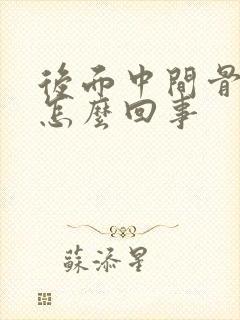 後而中間骨
怎麼回事
蘇添星